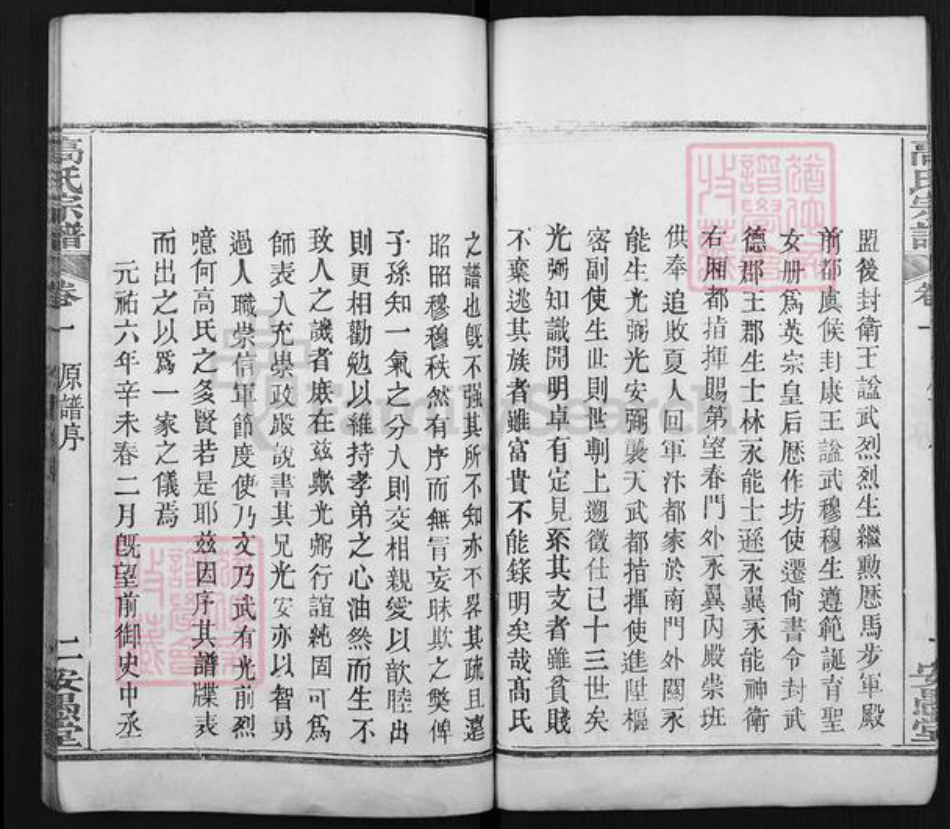 盟後封衛王諡武烈烈生繼勲歴馬步軍殿
前都虞候封康王諡武穆穆生遵範誕育聖
女册爲英宗皇后歴作坊使遷尙書令封武
德郡王郡生士林永能士遜永翼永能神衛
右厢都指揮賜第望春門外永翼内殿崇班
供奉追敗夏人回軍汴都家於南門外關永
能生光弼光安弼襲天武都指揮使進陞樞
密副使生世則世馴上遡徵仕已十三世矣
光弼知識開明卓有定見系其支者雖貧賤
不棄逃其族者雖富貴不能錄明矣哉高氏
高氏宗譜
卷一
原譜序
二
安愚堂
之譜也旣不强其所不知亦不畧其疏且遠
昭昭穆穆秩然有序而無冐妄昧欺之獘俾
子孫知一氣之分人則交相親愛以歆睦出
則更相勸勉以維持孝弟之心油然而生不
致人之譏者庶在兹歟光弼行誼純固可爲
師表人充崇政殿說書其兄光安亦以智勇
過人職崇信軍節度使乃文乃武有光前烈
噫何高氏之多賢若是耶兹因序其譜牒表
而出之以爲一家之儀焉
元祐六年辛未春二月旣望前御史中丞
高氏宗譜
卷一
安愚堂
FamilySearch